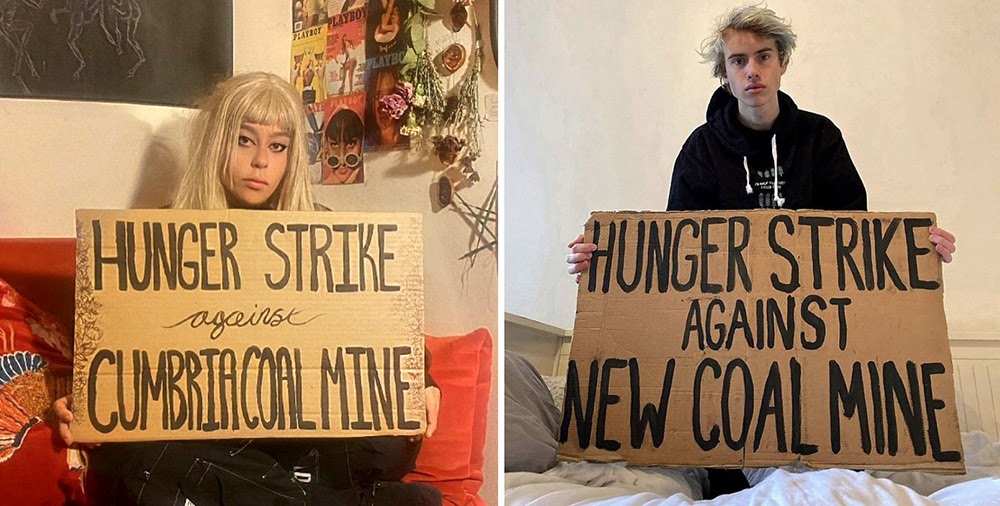 PLAYBOY
PLAYBOY
PLAYBOY
HUNGER STRIKE
against
CUMBRIA COAL MINE
HUNGER STRIKE
AGAINST
NEW COAL MINE